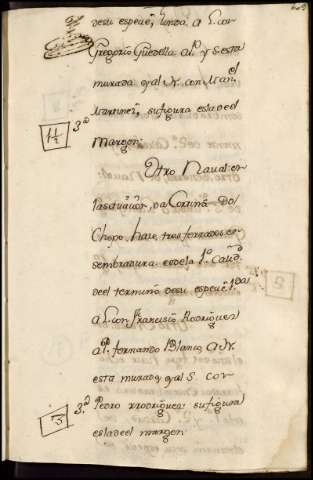 desu especē, linda. a L. cor
Gregorio Guedella al P.º y S. esta
murada y al N. con Man.el
Martinez, su figura esla del
14 3.a Margen.
Otro Naval en
, da Cortiña Do
Chopo, haze, tres ferrados en
sembradura es dela 1.a Calid.d
del termino desu especē L.das
a L. con Francisco Rodriguez
a P. fernando Blanco, a N.
esta murada, y al S. con
3 3.a Pedro Rodriguez su figura
esla del margen